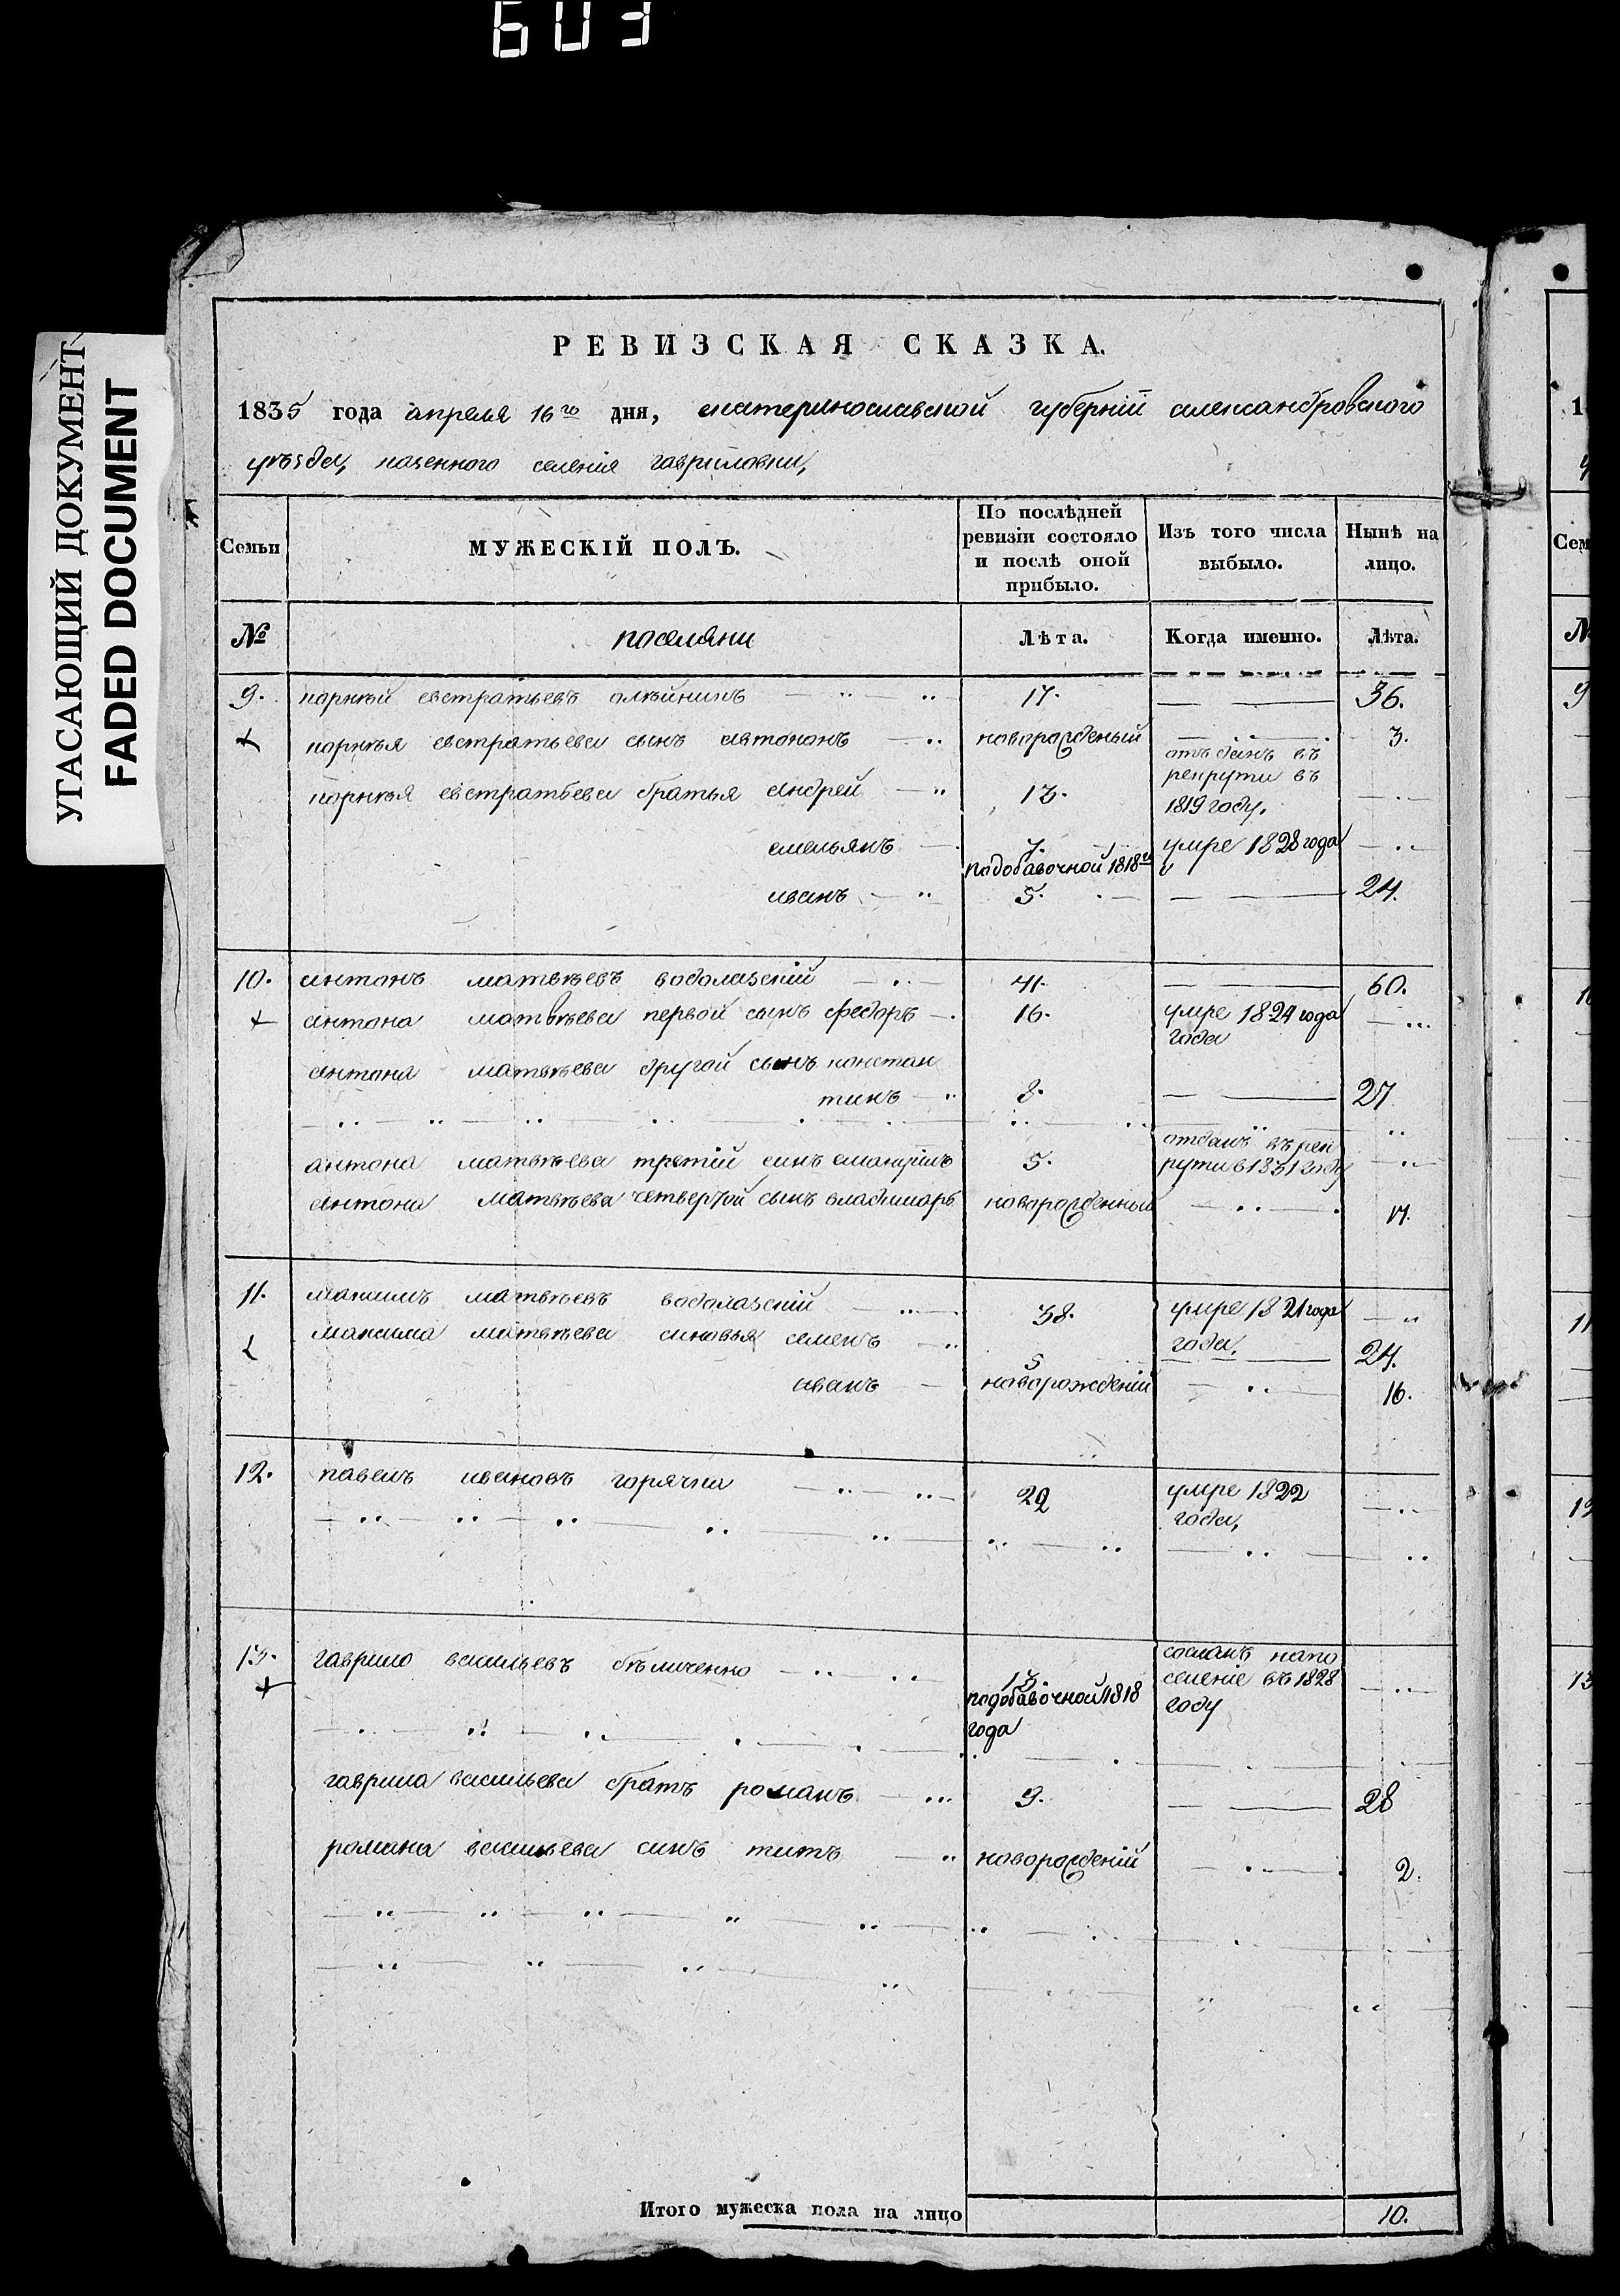 603
УГАСАЮЩИЙ ДОКУМЕНТ
FADED DOCUMENT
РЕВИЗСКАЯ СКАЗКА.
1835 года апреля 16го дня, екатеринославской губернїи александровского
уѣзда, казенного селенїя гавриловки,
Семьи
МУЖЕСКІЙ ПОЛЪ.
По послѣдней ревизіи состояло и послѣ оной прибыло.
Изъ того числа выбыло.
Нынѣ на лицо.
№ поселяни Лѣта. Когда именно. Лѣта.
9. корнѣй евстратьевъ олѣйникъ 17. 36.
корнѣя евстратьева сынъ автономъ новорожденый 3.
корнѣя евстратьева братья андрей 13. отъданъ въ рекрути въ 1819 году.
емельянъ 7. умре 1828 года
подобавочной 1818
иванъ 5. 24.
10. антонъ матвѣевъ водолазскїй 41. 60.
антона матвѣева первой сынъ федоръ 16. умре 1824 года
года
антона матвѣева другой сынъ констан
тинъ 8. 27
антона матвѣева третїй синъ 5. отданъ въ рек
рути в 1831 году
антона матвѣева четвертой сынъ владимиръ новорожденный 17.
11. максимъ матвѣевъ водолазскїй 38. умре 1821 года
года.
максима матвѣева синовья семенъ 5 24.
иванъ новорожденїй 16.
12. павелъ ивановъ горячка 22 умре 1822
года,
13. гаврило васильевъ бѣличенко 13. сосланъ на по
селенїе въ 1828
году
подобавочной 1818
года
гаврила васильева братъ романъ 9. 28
романа васильева синъ титъ новорожденїй 2.
Итого мужеска пола на лицо 10.
1
Сем
№
9
10
11
12
13